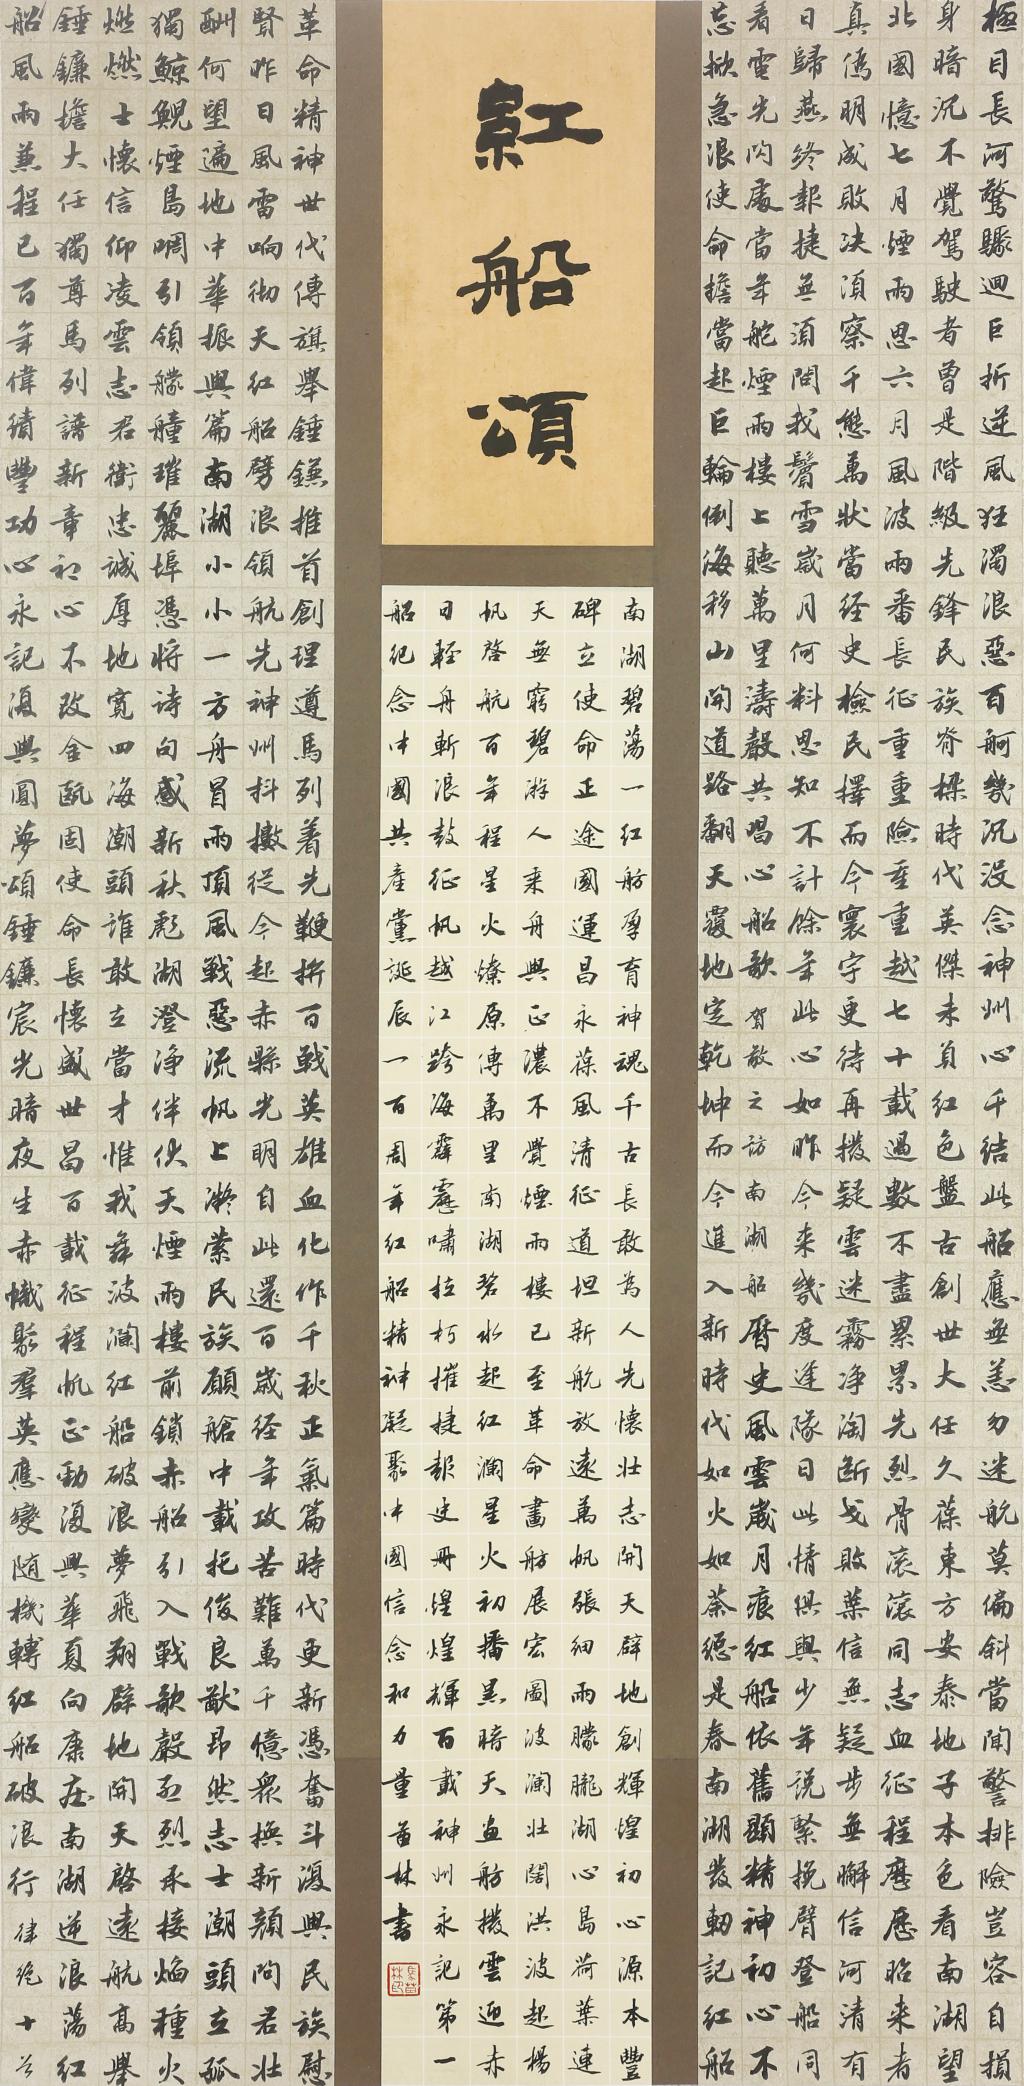 紅船頌
極目長河驚驟迴巨折逆風狂濁浪惡百舸幾沉沒念神州心千結此船應無恙勿迷航莫偏斜當聞警排險豈容自損
身暗沉不覺駕駛者曾是階級先鋒民族脊樑時代英傑未負紅色盤古創世大任久葆東方安泰地子本色看南湖望
北國憶七月煙雨思六月風波兩番長征重重險重重越七十載過數不盡累累先烈骨滾滾同志血征程歷歷昭來者
真偽明成敗決須察千態萬狀當経史檢民擇而今寰宇更待再撥疑雲迷霧净淘斷戈敗葉信無疑步無懈信河清有
日歸燕終報捷無須問我鬢雪歲月何料思知不計餘年此心如昨今來幾度逢隊日此情俱與少年說緊挽臂登船同
看電先閃處當年舵煙雨樓上聽萬里濤聲共唱心船歌 賀敬之訪南湖船 曆史風雲歲月痕紅船依舊顯精神初心不
忘掀急浪使命擔當起巨輪倒海移山開道路翻天覆地定乾坤而今進入新時代如火如荼總是春南湖發軔記紅船
南湖碧蕩一紅舫孕育神魂千古長敢為人先懷壯志開天辟地創輝煌初心源本豐
碑立使命正途國運昌永葆風清征道坦新航放遠萬帆張細雨朦朧湖心島荷葉連
天無窮碧游人乘舟興正濃不覺煙雨樓已至革命畫舫展宏圖波瀾壯闊洪波起揚
帆啓航百年程星火燎原傳萬里南湖碧水起紅瀾星火初播黑暗天畫舫撥雲迎赤
日輕舟斬浪鼓征帆越江跨海霹靂嘯拉朽摧捷報史冊煌煌輝百載神州永記第一
船紀念中國共產黨誕辰一百周年紅船精神凝聚中國信念和力量苗林書
革命精神世代傳旗舉錘鐮推首創理遵馬列着先鞭拚百戰英雄血化作千秋正氣篇時代更新憑奮斗復興民族慰
賢昨日風雷响彻天紅船劈浪領航先神州抖擻從今起赤縣光明自此還百歲経年攻苦難萬千億眾換新顏問君壯
酬何望遍地中華振興篇南湖小小一方舟冒雨頂風戰惡流帆上凝縈民族願艙中載托俊良猷昂然志士潮頭立孤
獨鯨鯢煙島啁引領艨艟璀麗埠憑將诗句感新秋湖澄净伴伙天煙雨樓前鎖赤船引入戰歌聲烈承接焰種火
燃燃士懷信仰凌雲志君銜忠誠厚地寬四海潮頭誰敢立當才惟我舞波瀾紅船破浪夢飛翔辟地開天啓遠航高舉
錘鐮擔大任獨尊馬列譜新章初心不改金甌固使命長懷盛世昌百載征程帆正動復興華夏向康莊南湖逆浪蕩紅
船風雨兼程已百年偉績豐功心永記復興圓夢頌錘鐮宸光暗夜生赤幟聚羣英應變随機轉紅船破浪行 律绝十首